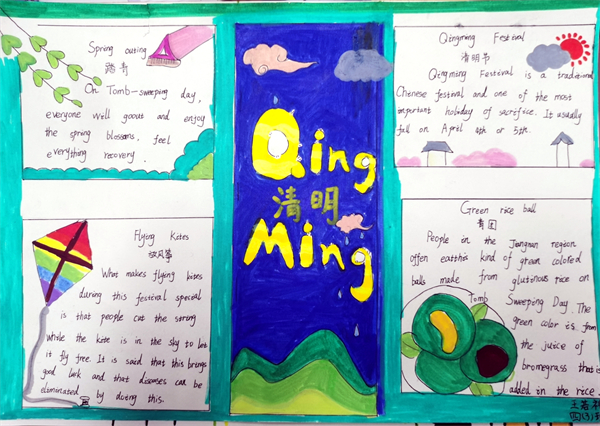 Spring outing
踏青
On Tomb-sweeping day,
everyone will goout and enjoy
the spring blossoms, feel
everything recovery.
Flying Kites
放风筝
What makes flying kites
during this festival special
is that people cut the string
while the kite is in the sky to let
it fly free. It is said that this brings
good luck and that diseases can be
eliminated by doing this.
Qing
清明
Ming
Qingming Festival
清明节
Qingming Festival is a traditional
Chinese festival and one of the most
important holiday of sacrifice. It usually
fall on April 4th or 5th.
Green rice ball
青团
People in the Jiangnan region
often eatthis kind of green colored
balls made from glutinous rice on
Tomb Sweeping Day. The
green color is from
the juice of
bromegrass that is
added in the rice.
王若
四(3)